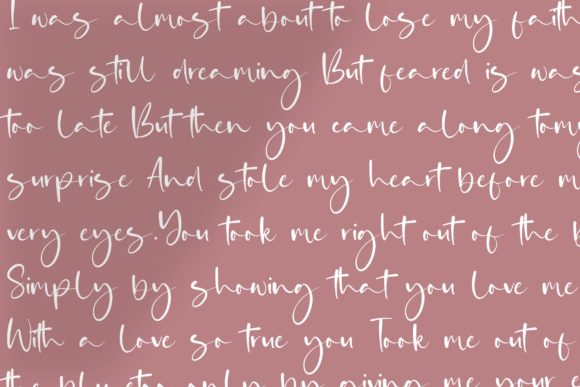 I was almost about to lose my faith
was still dreaming But feared is was
too late But then you came along to my
surprise And stole my heart before m
very eyes. You took me right out of the b
Simply by showing that you love me
With a love so true you Took me out of
the only by giving me your